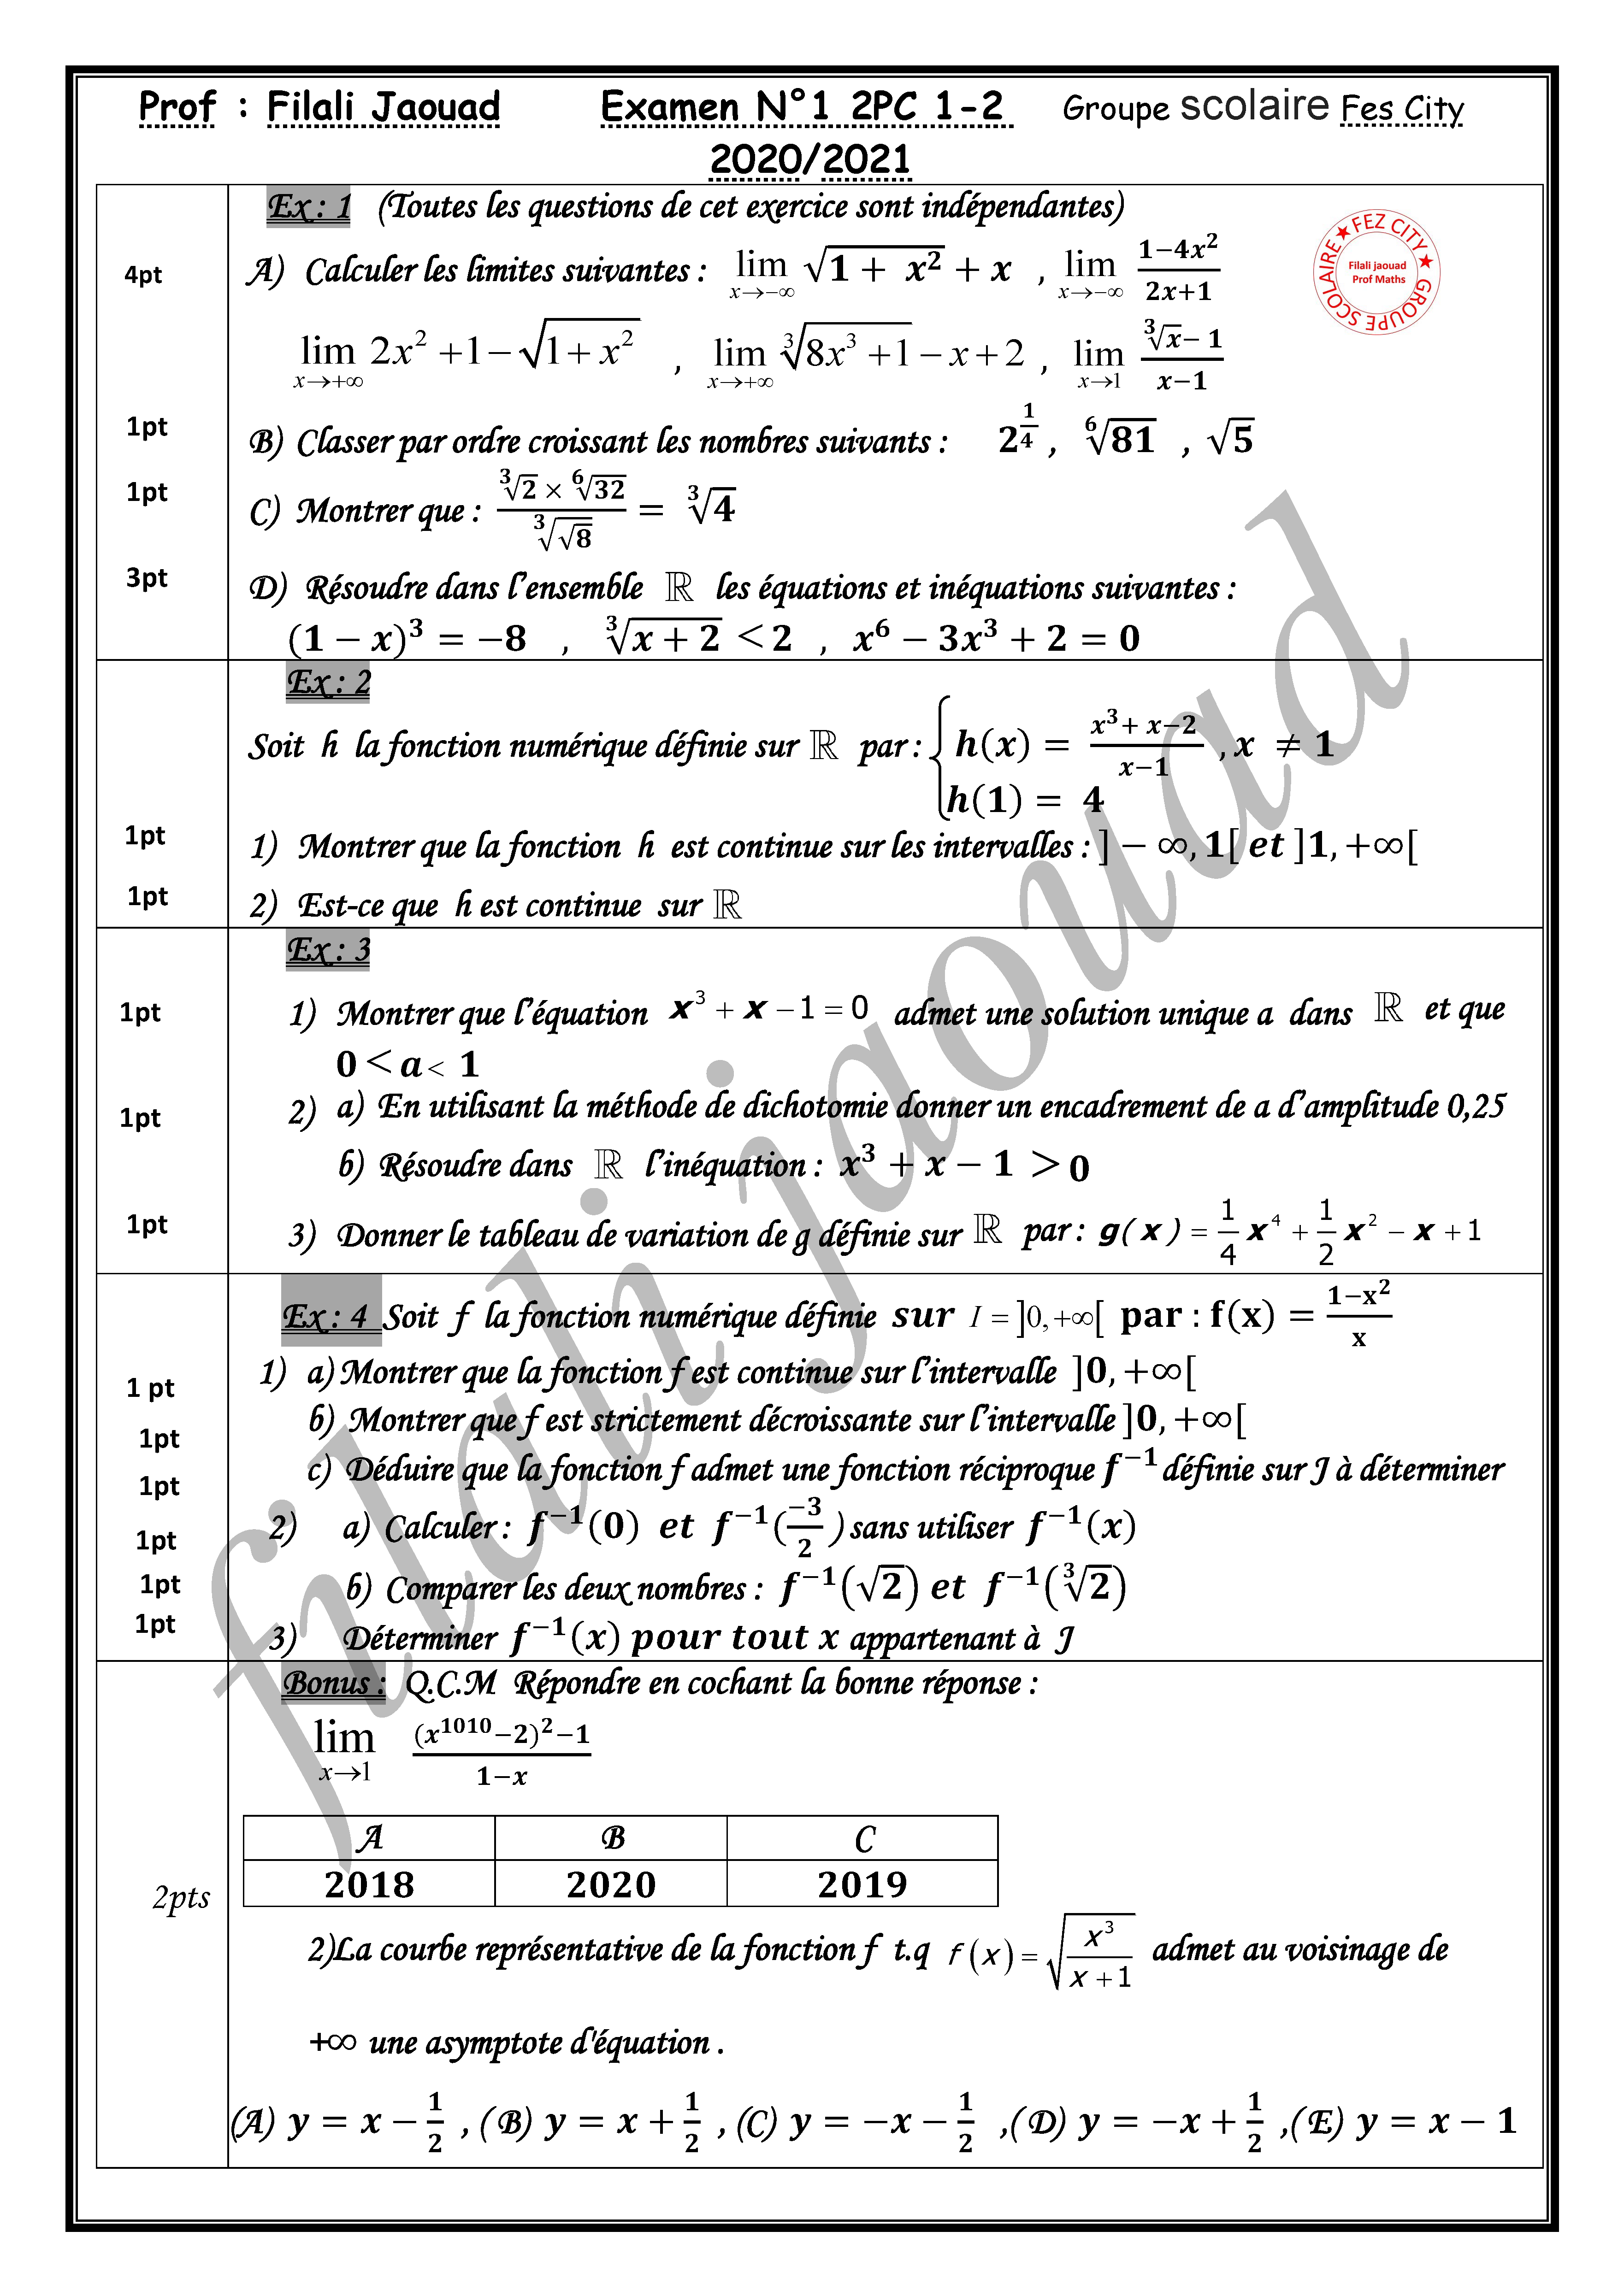 Prof : Filali Jaouad Examen N°1 2PC 1-2 Groupe scolaire Fes City
2020/2021
Ex : 1 (Toutes les questions de cet exercice sont indépendantes)
FEZ CITY ★ GROUPE SCOLAIRE ★
Filali jaouad
Prof Maths
4pt A) Calculer les limites suivantes : lim x→−∞ √(1 + x²) + x , lim x→−∞ (1−4x²)/(2x+1)
lim x→+∞ 2x² + 1 − √(1 + x²) , lim x→+∞ ∛(8x³ + 1) − x + 2 , lim x→1 (∛x − 1)/(x−1)
1pt B) Classer par ordre croissant les nombres suivants : 2^(1/4) , ⁶√81 , √5
1pt C) Montrer que : (∛2 × ⁶√32)/(∛√8) = ∛4
3pt D) Résoudre dans l'ensemble ℝ les équations et inéquations suivantes :
(1 − x)³ = −8 , ∛(x + 2) < 2 , x⁶ − 3x³ + 2 = 0
Ex : 2
Soit h la fonction numérique définie sur ℝ par : { h(x) = (x³+ x−2)/(x−1) , x ≠ 1
h(1) = 4
1pt 1) Montrer que la fonction h est continue sur les intervalles : ] − ∞, 1[ et ]1, +∞[
1pt 2) Est-ce que h est continue sur ℝ
Ex : 3
1pt 1) Montrer que l'équation x³ + x − 1 = 0 admet une solution unique a dans ℝ et que
0 < a < 1
1pt 2) a) En utilisant la méthode de dichotomie donner un encadrement de a d'amplitude 0,25
b) Résoudre dans ℝ l'inéquation : x³ + x − 1 > 0
1pt 3) Donner le tableau de variation de g définie sur ℝ par : g( x ) = 1/4 x⁴ + 1/2 x² − x + 1
Ex : 4 Soit f la fonction numérique définie sur I = ]0, +∞[ par : f(x) = (1−x²)/x
1 pt 1) a) Montrer que la fonction f est continue sur l'intervalle ]0, +∞[
1pt b) Montrer que f est strictement décroissante sur l'intervalle ]0, +∞[
1pt c) Déduire que la fonction f admet une fonction réciproque f⁻¹ définie sur J à déterminer
1pt 2) a) Calculer : f⁻¹(0) et f⁻¹(−3/2 ) sans utiliser f⁻¹(x)
1pt b) Comparer les deux nombres : f⁻¹(√2) et f⁻¹(∛2)
1pt 3) Déterminer f⁻¹(x) pour tout x appartenant à J
Bonus : Q.C.M Répondre en cochant la bonne réponse :
lim x→1 ((x¹⁰¹⁰−2)²−1)/(1−x)
A B C
2018 2020 2019
2pts
2)La courbe représentative de la fonction f t.q f (x) = √(x³/(x + 1)) admet au voisinage de
+∞ une asymptote d'équation .
(A) y = x − 1/2 , ( B) y = x + 1/2 , (C) y = −x − 1/2 ,( D) y = −x + 1/2 ,( E) y = x − 1
filali jaouad